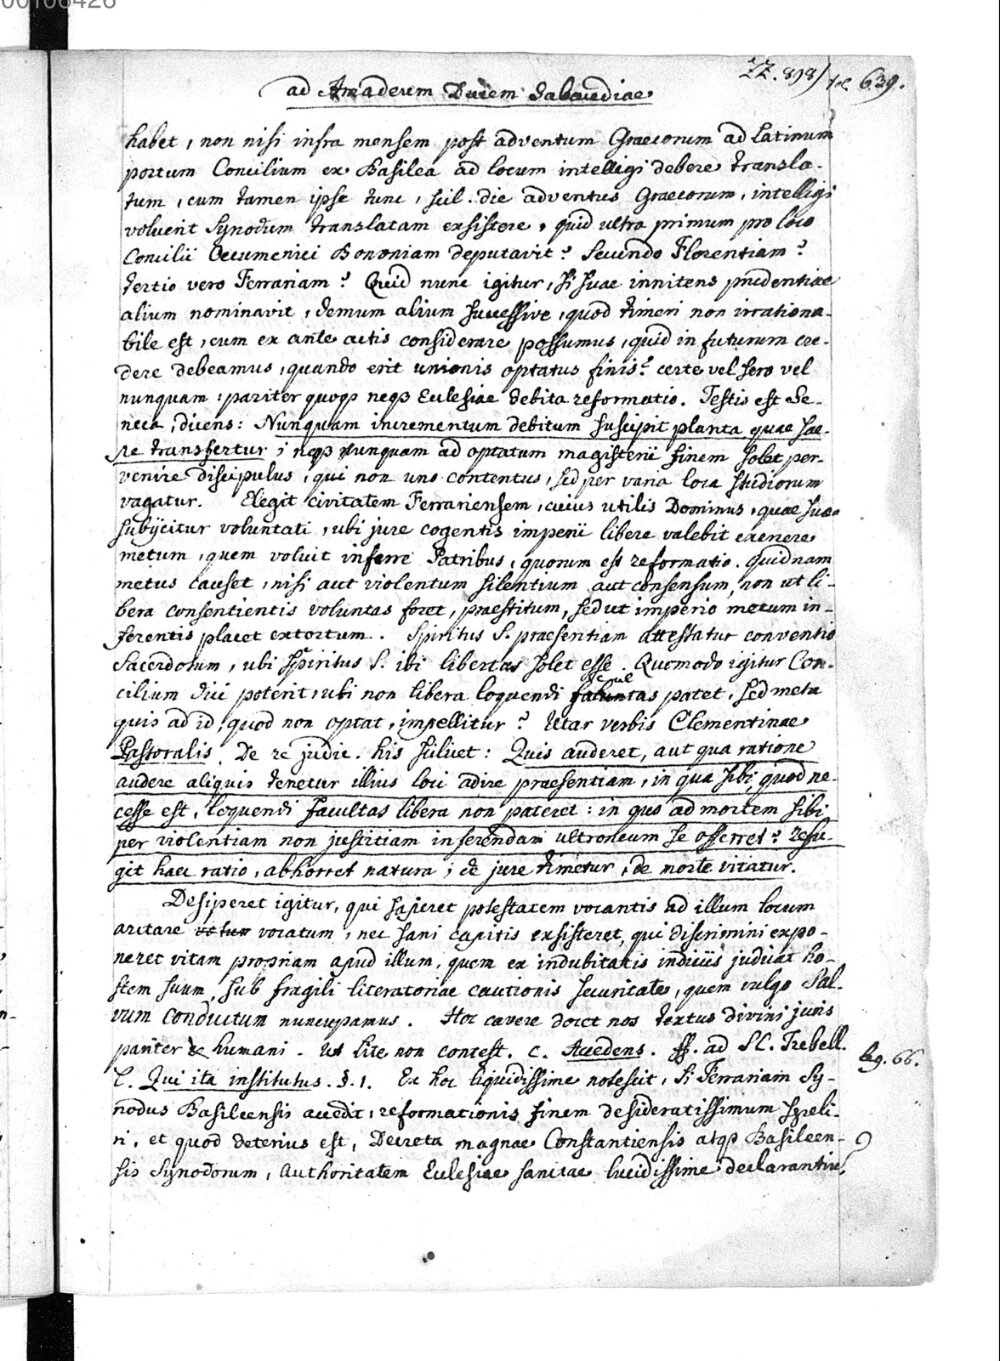 00100426
ad Amadeum Ducem Sabaudiae
22. 898/ fol 639.
habet, non nisi infra mensem post adventum Graecorum ad Latinum
portum Concilium ex Basilea ad locum intelligi debere transla-
tum, cum tamen ipse tunc, scil. die adventus Graecorum, intelligi
voluerit Synodum translatam exsistere, quid ultra primum pro loco
Concilii Oecumenici Bononiam deputavit? Secundo Florentiam?
tertio vero Ferrariam? Quid nunc igitur, si suae innitens prudentiae
alium nominavit, demum alium successive, quod timeri non irrationa-
bile est, cum ex ante actis considerare possumus, quid in futurum cre-
dere debeamus, quando erit unionis optatus finis? certe vel sero vel
nunquam: pariter quoq neq Ecclesiae debita reformatio. Testis est Se-
neca, dicens: Nunquam incrementum debitum suscipit planta quae sae-
pe transfertur; neq nunquam ad optatum magisterii finem solet per-
venire discipulus, qui non uno contentus, sed per varia loca studiorum
vagatur. Elegit civitatem Ferrariensem, cuius utilis Dominus, quae suae
subijcitur voluntati, ubi jure cogentis imperii libere valebit exercere
metum, quem voluit inferri Patribus, quorum est reformatio. quidnam
metus causet, nisi aut violentum silentium, aut consensum, non ut li-
bera consentientis voluntas foret, praestitum, sed ut imperio metum in-
ferentis placet extortum. Spiritus S. praesentiam attestatur conventio
Sacerdotum, ubi Spiritus S. ibi libertas solet esse. Quomodo igitur Con-
cilium dici poterit, ubi non libera loquendi facultas patet, sed metu
quis ad id, quod non optat, impellitur? Utar verbis Clementinae
Pastoralis. De re judic. his scilicet: Quis auderet, aut qua ratione
audere aliquis tenetur illius loci adire praesentiam, in qua sibi, quod ne-
cesse est, loquendi facultas libera non pateret: in quo ad mortem sibi
per violentiam non justitiam inferendam ultroneum se offerret? refu-
git haec ratio, abhorret natura; de jure timetur, de morte vitatur.
Desiperet igitur, qui saperet potestatem vocantis ad illum locum
arctare vocatum, nec sani capitis exsisteret, qui discrimini expo-
neret vitam propriam apud illum, quem ex indubitatis indiciis judicat ho-
stem suum, sub fragili literatoriae cautionis securitate, quem vulgo Sal-
vum Conductum nuncupamus. Hoc cavere docet nos textus divini juris
pariter & humani. Ut lite non contest. C. Accedens. ff. ad SC. Trebell.
leg. 66.
l. Qui ita institutus. §. 1. Ex hoc liquidissime notescit, si Ferrariam Sy-
nodus Basileensis accedit, reformationis finem desideratissimum speli-
ri, et quod deterius est, Decreta magnae Constantiensis atq Basileen-
sis Synodorum, Authoritatem Ecclesiae sanctae lucidissime declarantium?